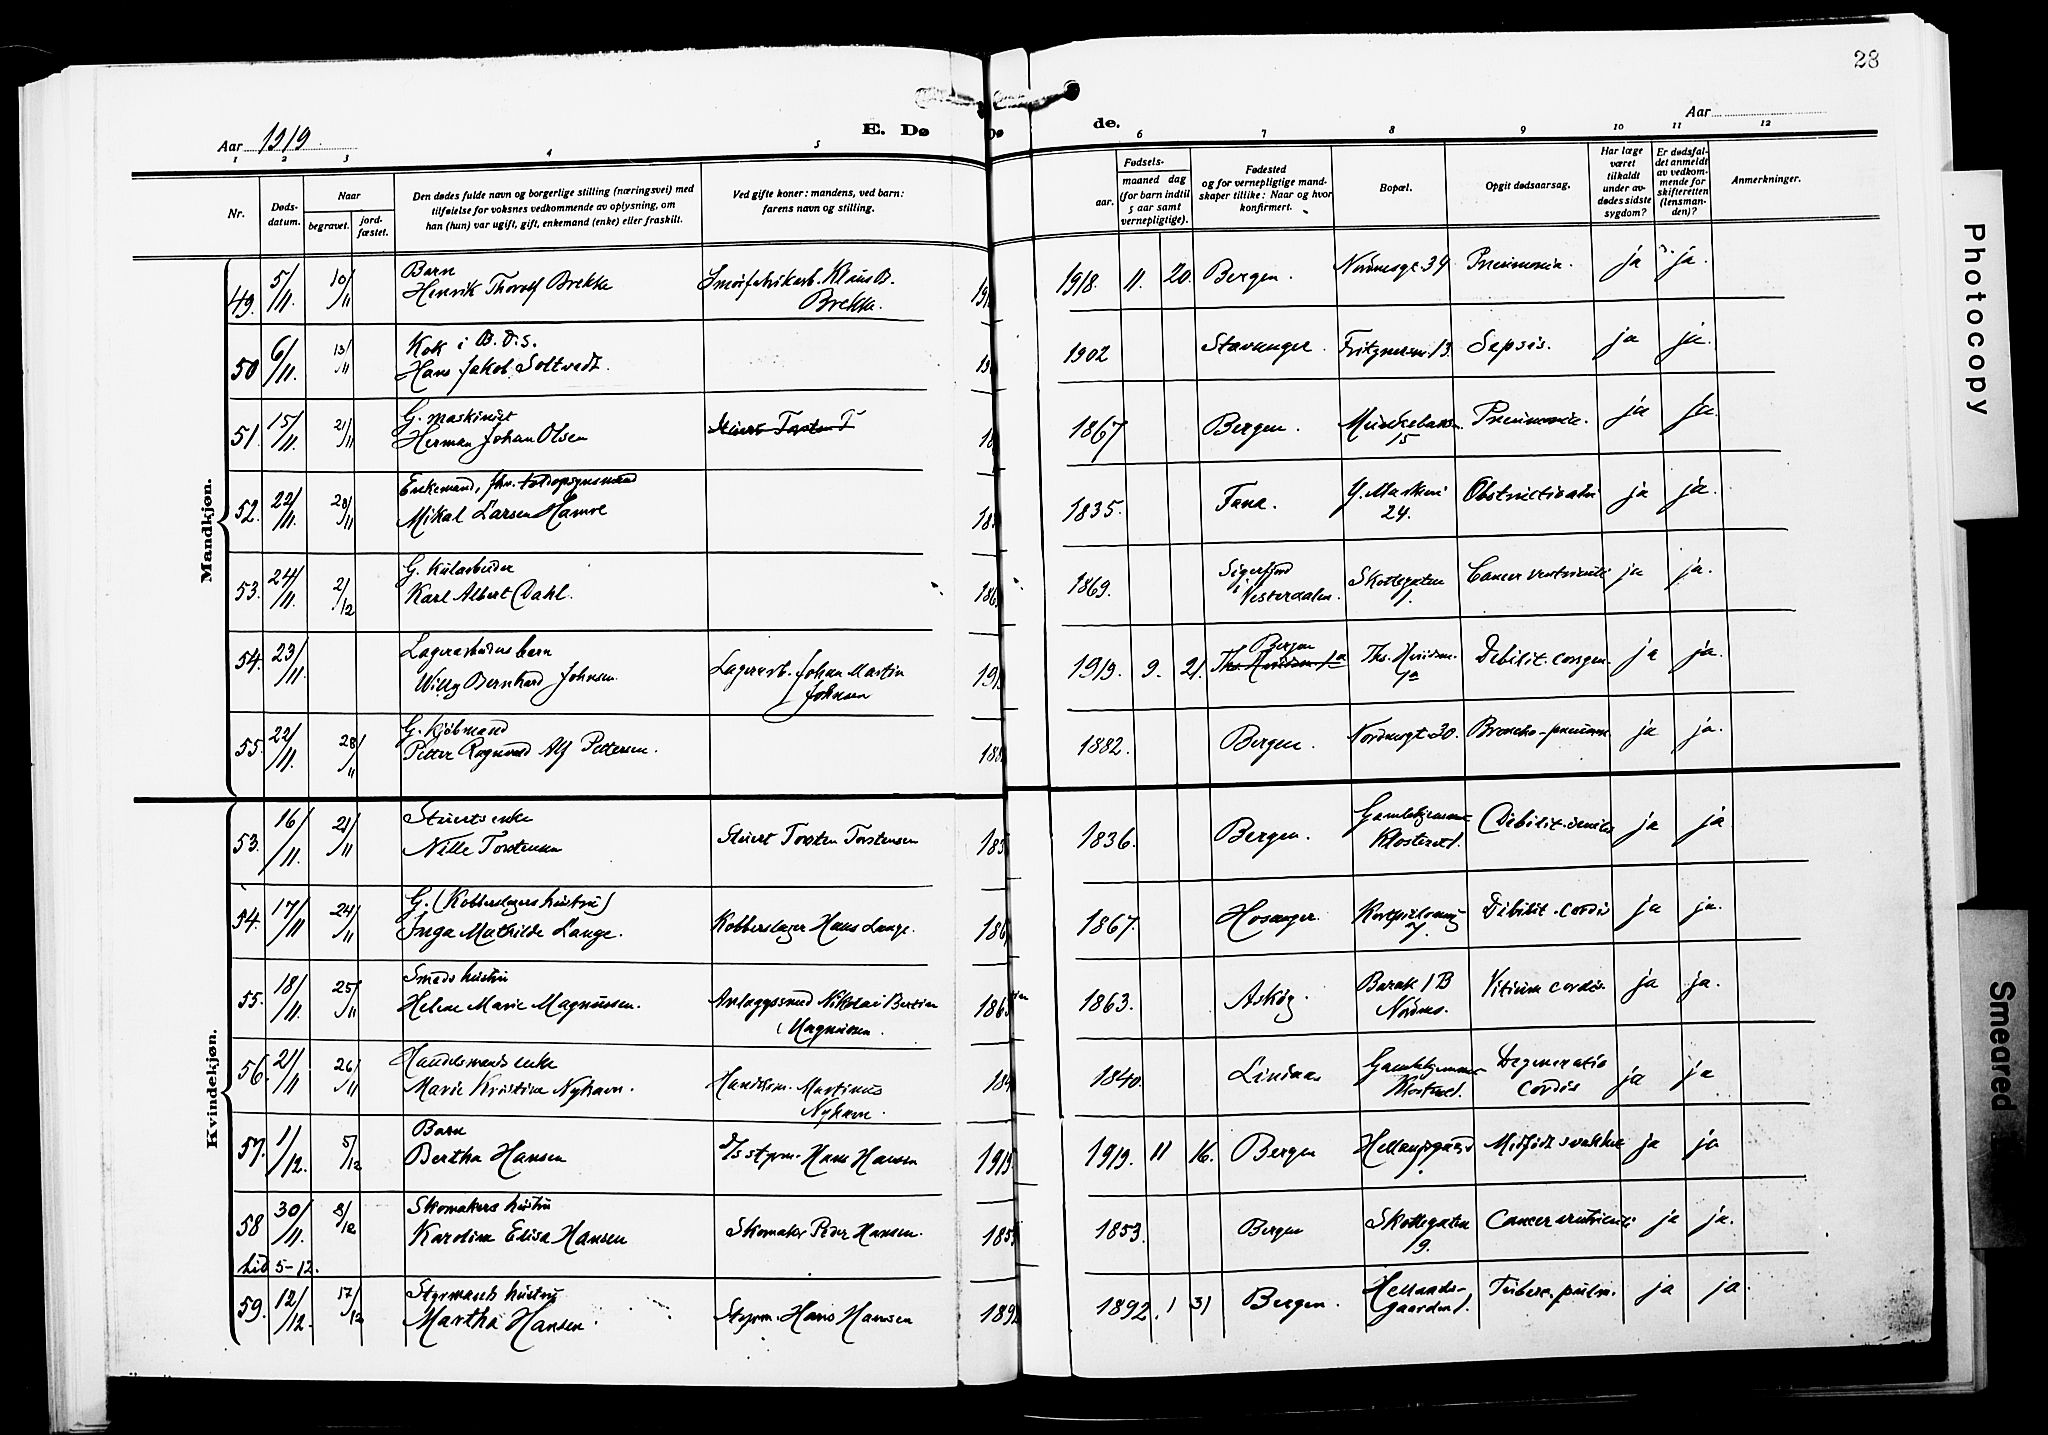 28
Aar 1919
E. Dø
Dø
de.
Aar
1 2 3 4 5
6 7 8 9 10 11 12
Nr.
Døds-
datum.
Naar
begravet.
jord-
fæstet.
Den dødes fulde navn og borgerlige stilling (næringsvei) med
tilføielse for voksnes vedkommende av oplysning, om
han (hun) var ugift, gift, enkemand (enke) eller fraskilt.
Ved gifte koner: mandens, ved barn:
farens navn og stilling.
aar.
Fødsels-
maaned dag
(for barn indtil
5 aar samt
vernepligtige).
Fødested
og for vernepligtige mand-
skaper tillike: Naar og hvor
konfirmert.
Bopæl.
Opgit dødsaarsag.
Har læge
været
tilkaldt
under av-
dødes sidste
sygdom?
Er dødsfal-
det anmeldt
av vedkom-
mende for
skifteretten
(lensman-
den)?
Anmerkninger.
Mandkjøn.
49. 5/11. 10/11 Barn
Henrik Thorolf Brekke Smørfabrikarb. Klaus B.
Brekke. 1918. 11. 20. Bergen. Nordnesgt 34 Pneumonia. ja ja.
50 6/11. 13/11 Kok i B.D.S.
Hans Jakob Soltvedt. 1902 Stavanger. 13. Sepsis. ja ja.
51. 15/11. 21/11 G. maskinist
Herman Johan Olsen Stuert Torsten T 1867 Bergen. 15 Pneumonia. ja ja.
52. 22/11. 28/11 Enkemand, fhv. toldopsynsmand
Mikal Larsen Hamre 1835. Fana. 24. ja ja.
53. 24/11. 2/12 G. Kularbeider
Karl Albert Dahl. 1869. Sigerfjord
i Vesteraalen. Skottegaten
1. Cancer ventriculi ja ja.
54. 23/11. Lagerarbeiders barn
Willy Bernhard Johnsen. Lagerarb. Johan Martin
Johnsen 1919. 9. 21. Bergen
1a Debilit. congen. ja ja.
55. 22/11. 28/11 G. Kjøbmand
Petter Ragnvald Alf Pettersen. 1882. Bergen. Nordnesgt 30. Broncho-pneumon ja ja.
Kvindekjøn.
53. 16/11. 21/11 Stuerts enke
Nille Torstensen Stuert Torsten Torstensen 1836. Bergen. Gamlehjemmet
Klosteret. Debilit. senilis ja ja
54. 17/11 24/11 G. (Kobberslagers hustru)
Inga Mathilde Lange. Kobberslager Hans Lange. 1867. Hosanger. 7. Debilit. cordis ja ja.
55. 18/11. 25/11 Smeds hustru
Helene Marie Magnussen. Anlægssmed Nikolai Bertin
Magnussen. 1863. Askøy. Barak 1 B
Nordnes. Vitium cordis ja ja.
56. 21/11 26/11 Handelsmands enke
Marie Kristine Nyhavn. Handelsm. Martinus
Nyhavn. 1840. Lindaas Gamlehjemmet
Klosteret. Degeneratio
cordis ja ja
57. 1/12. 5/12 Barn
Bertha Hansen D/S styrm. Hans Hansen 1919. 11 16. Bergen Hellandsgaard
1. Medfødt svakhet ja ja
58 30/11. 8/12 Skomakers hustru
Karoline Elisa Hansen Skomaker Peder Hansen. 1853. Bergen Skottegaten
19. Cancer ventriculi ja ja.
hid 5-12.
59. 12/12. 17/12 Styrmands hustru
Martha Hansen. Styrm. Hans Hansen 1892. 1 31 Bergen. Hellands-
gaarden 1. Tuberc. pulm. ja ja.
Photocopy
Smeared